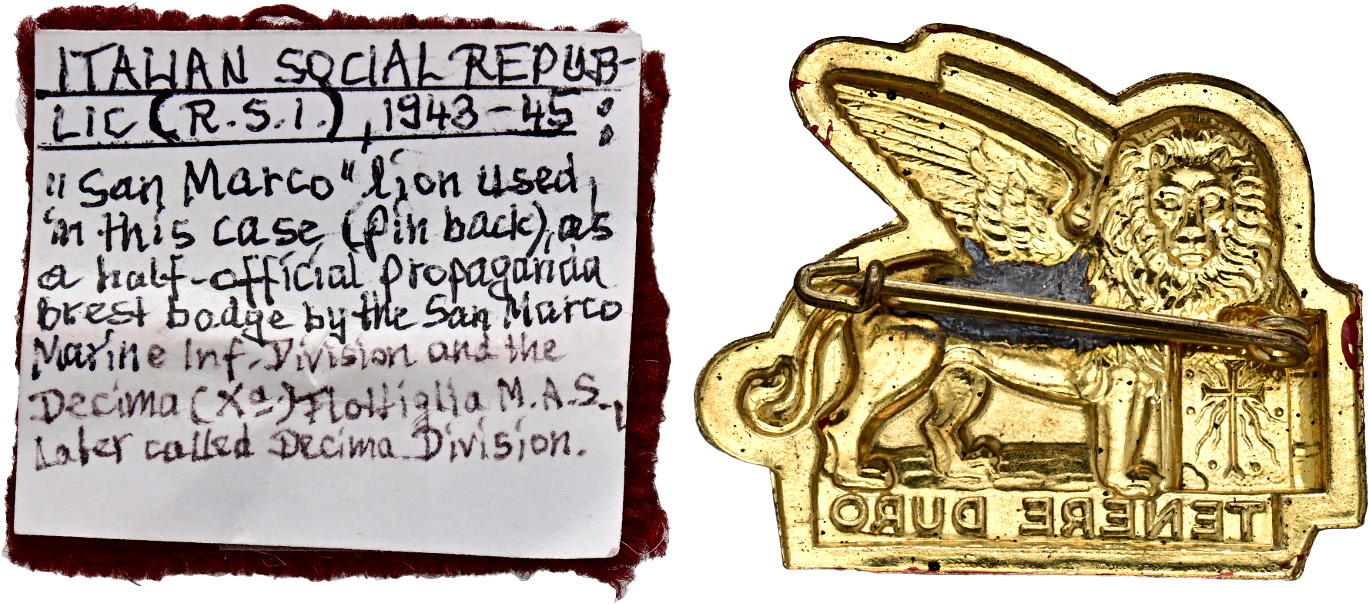 ITALIAN SOCIAL REPUB-
LIC (R.S.I.), 1943-45:
"San Marco" lion used,
in this case (pin back), as
a half-official propaganda
brest badge by the San Marco
Marine Inf. Division and the
Decima (Xª) Flottiglia M.A.S.,
Later called Decima Division.
TENERE DURO